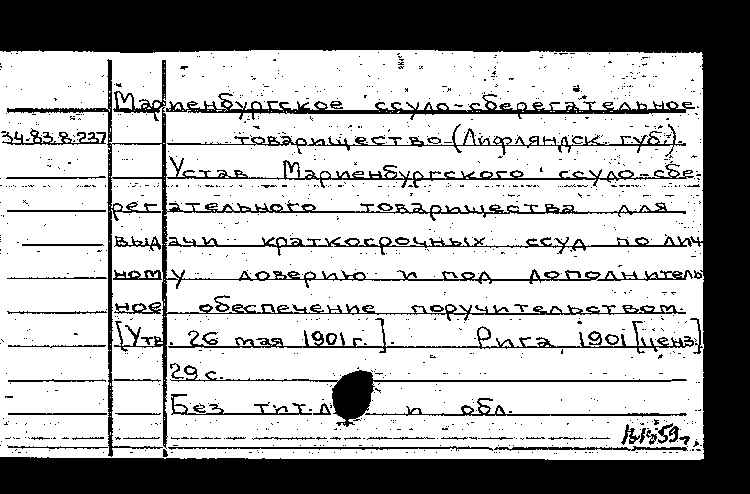 Мариенбургское ссудо-сберегательное
34.83.8.237 товарищество (Лифляндск. губ.).
Устав Мариенбургского ссудо-сбе-
регательного товарищества для
выдачи краткосрочных ссуд по лич
ному доверию и под дополнитель
ное обеспечение поручительством.
[Утв. 26 мая 1901 г.]. Рига, 1901 [ценз.]
29 с.
Без тит. л и обл.